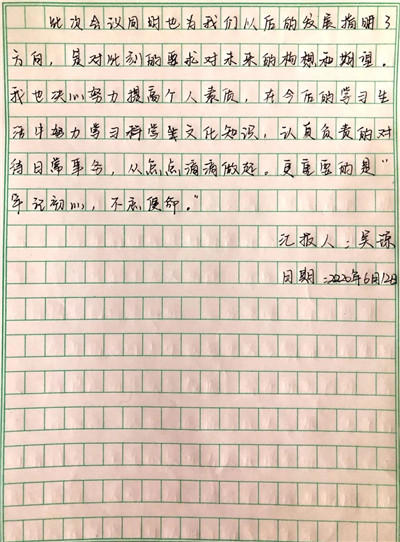 此次会议同时也为我们以后的发展指明了
方向，是对此刻的要求对未来的构想和期望。
我也决心努力提高个人素质，在今后的学习生
活中努力学习科学生文化知识，认真负责的对
待日常事务，从点点滴滴做起。更重要的是“
牢记初心，不忘使命。”
汇报人：吴琼
日期：2020年6月12日